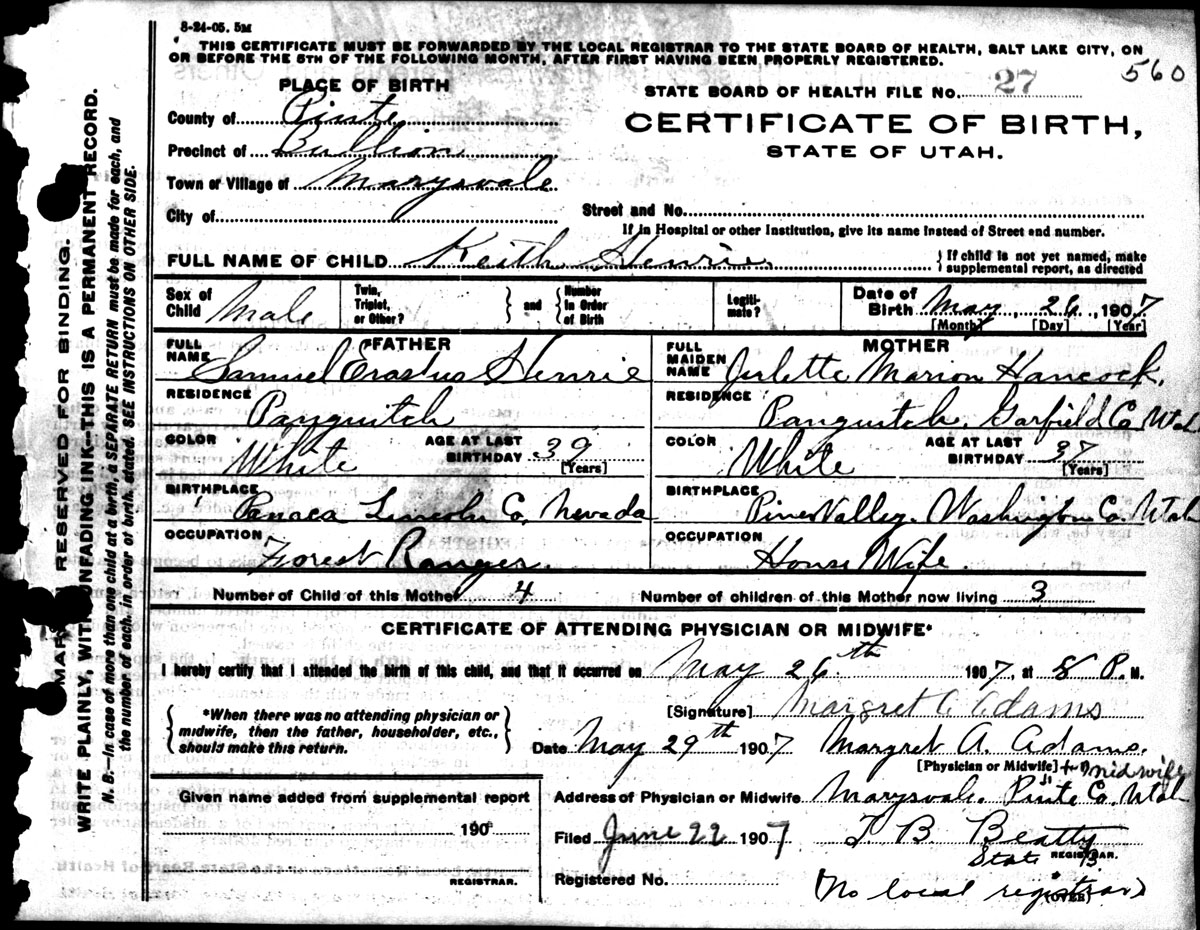 8-24-05. 5M
THIS CERTIFICATE MUST BE FORWARDED BY THE LOCAL REGISTRAR TO THE STATE BOARD OF HEALTH, SALT LAKE CITY, ON
OR BEFORE THE 5TH OF THE FOLLOWING MONTH, AFTER FIRST HAVING BEEN PROPERLY REGISTERED.
560
PLACE OF BIRTH
STATE BOARD OF HEALTH FILE No. 27
County of Piute
CERTIFICATE OF BIRTH,
Precinct of Bullion
STATE OF UTAH.
Town or Village of Marysvale
City of
Street and No.
If in Hospital or other Institution, give its name instead of Street and number.
FULL NAME OF CHILD Keith Henrie
} If child is not yet named, make
supplemental report, as directed
Sex of Child Male
Twin, Triplet, or Other?
} and { Number in Order of Birth
Legiti- mate?
Date of Birth May, 26, 1907
[Month] [Day] [Year]
FATHER
FULL NAME Samuel Erastus Henrie
MOTHER
FULL MAIDEN NAME Juliette Marion Hancock.
RESIDENCE Panguitch
RESIDENCE Panguitch. Garfield Co Utah
COLOR White AGE AT LAST BIRTHDAY 39 [Years]
COLOR White AGE AT LAST BIRTHDAY 37 [Years]
BIRTHPLACE Panaca Lincoln Co, Nevada
BIRTHPLACE Pine Valley. Washington Co. Utah
OCCUPATION Forest Ranger.
OCCUPATION House Wife.
Number of Child of this Mother 4 Number of children of this Mother now living 3
CERTIFICATE OF ATTENDING PHYSICIAN OR MIDWIFE*
I hereby certify that I attended the birth of this child, and that it occurred on May 26th 1907, at 8 P. M.
{ *When there was no attending physician or
midwife, then the father, householder, etc.,
should make this return. }
[Signature] Margret A Adams
Date May 29th 1907 Margret A. Adams.
[Physician or Midwife] midwife
Given name added from supplemental report
190
REGISTRAR.
Address of Physician or Midwife Marysvale. Piute Co. Utah
Filed June 22 1907 T. B. Beatty
State REGISTRAR.
Registered No. (No local registrar)
(OVER)
MARGIN RESERVED FOR BINDING.
WRITE PLAINLY, WITH UNFADING INK—THIS IS A PERMANENT RECORD.
N. B.—In case of more than one child at a birth, a SEPARATE RETURN must be made for each, and
the number of each, in order of birth, stated. SEE INSTRUCTIONS ON OTHER SIDE.